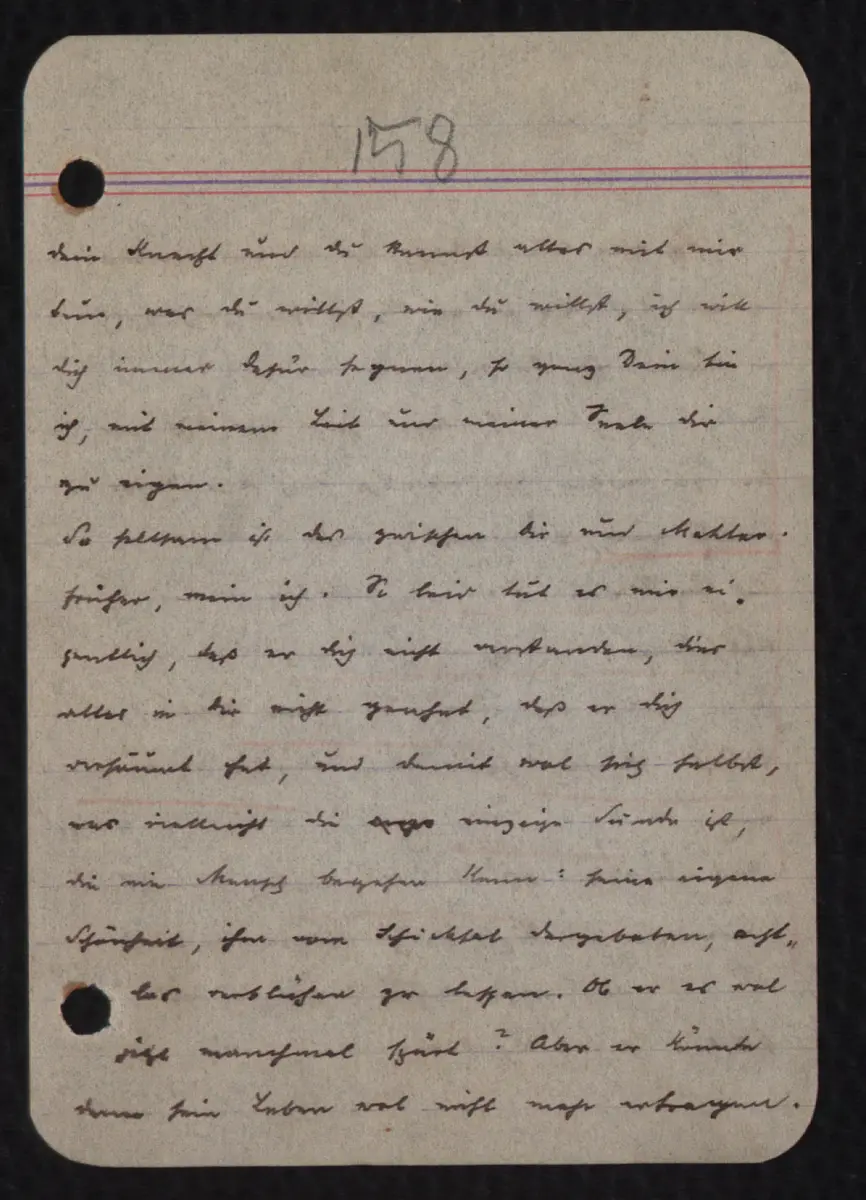 158
dein Knecht und du kannst alles mit mir
tun, was du willst, wie du willst, ich will
dich immer dafür segnen, so ganz Dein bin
ich, mit meinem Leib und meiner Seele dir
zu eigen.
So seltsam ist das zwischen dir und Mahler.
früher, mein ich. So leid tut es mir ei-
gentlich, daß er dich nicht verstanden, dies
alles in dir nicht geahnt, daß er dich
versäumt hat, und damit wol sich selbst,
was vielleicht die einzige Sünde ist,
die ein Mensch begehen kann: seine eigene
Schönheit, ihm vom Schicksal dargeboten, acht-
los verblühen zu lassen. Ob er es wol
jetzt manchmal spürt? Aber er könnte
dann sein Leben wol nicht mehr ertragen.